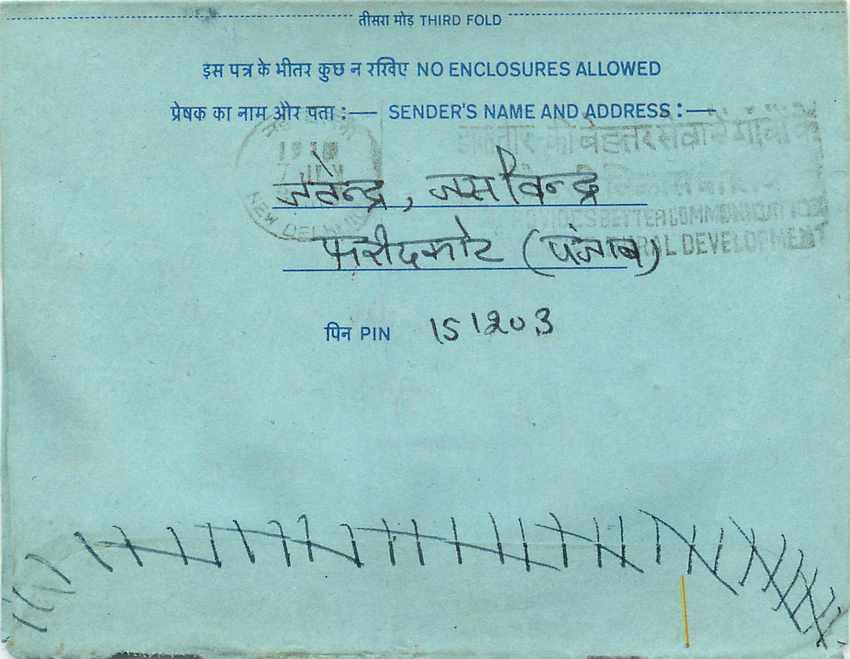 तीसरा मोड़ THIRD FOLD
इस पत्र के भीतर कुछ न रखिए NO ENCLOSURES ALLOWED
प्रेषक का नाम और पता :— SENDER'S NAME AND ADDRESS :—
की बेहतर सेवा से गाँवों के
जतेन्द्र, जसविन्द्र
BETTER COMMUNICATION
NEW DELHI
फरीदकोट (पंजाब)
RURAL DEVELOPMENT
पिन PIN 151203